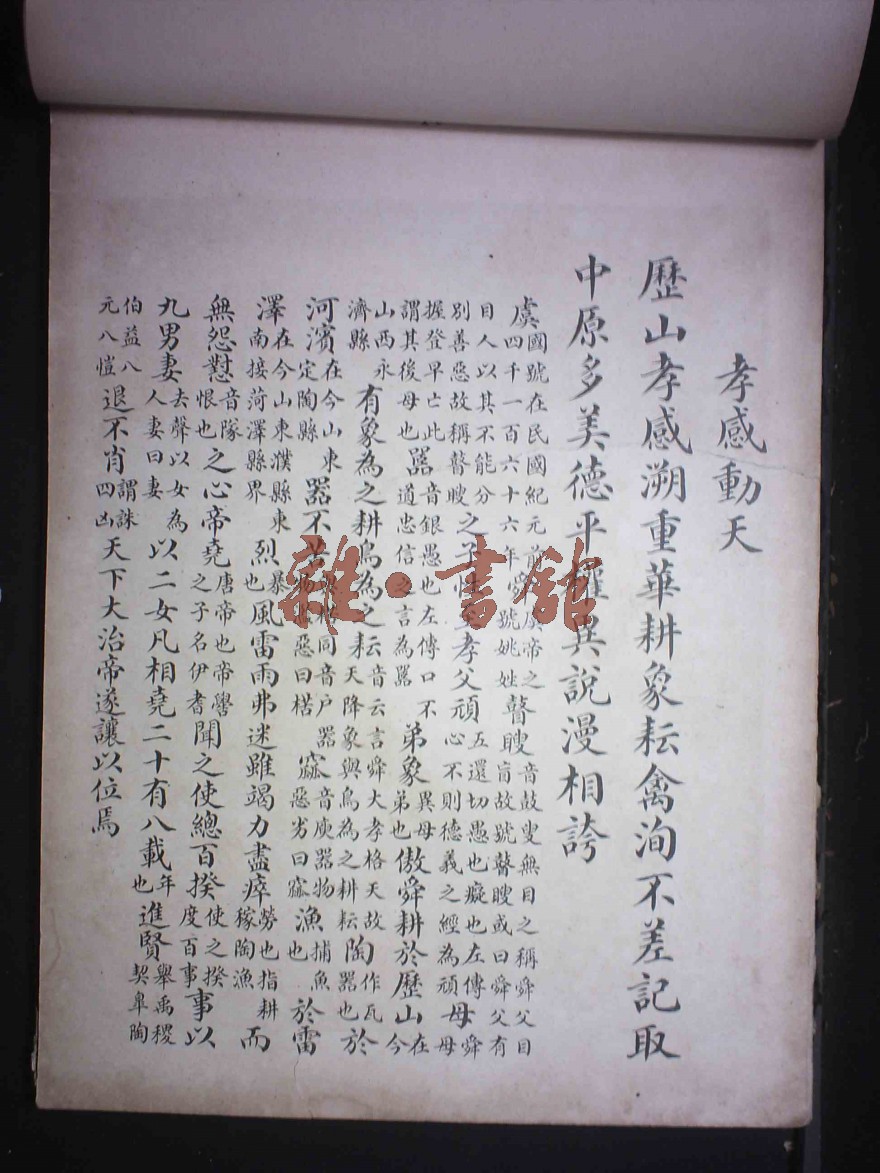 孝感動天
歷山孝感溯重華耕象耘禽洵不差記取
中原多美德平權異說漫相誇
虞國號在民國紀元前虞帝之四千一百六十六年號姚姓瞽瞍音鼓叟無目之稱舜父目盲故號瞽瞍或曰舜父有
目人以其不能分別善惡故稱瞽瞍之子性至孝父頑五還切愚也癡也左傳心不則德義之經為頑母舜母
握登早亡此謂其後母也嚚音銀愚也左傳口不道忠信之言為嚚弟象異母弟也傲舜耕於歷山在今
山西永濟縣有象為之耕鳥為之耘音云言舜大孝格天故天降象與鳥為之耕耘陶作瓦器也於
河濱在今山東定陶縣器不苦同音戶器惡曰楛窳音庾器物惡劣曰窳漁捕魚也於雷
澤在今山東濮縣東南接菏澤縣界烈暴也風雷雨弗迷雖竭力盡瘁勞也指耕稼陶漁而
無怨懟音隊恨也之心帝堯唐帝也帝嚳之子名伊耆聞之使總百揆使之揆度百事事以
九男妻去聲以女為人妻曰妻以二女凡相堯二十有八載年也進賢舉禹稷契皋陶
伯益八元八愷退不肖謂誅四凶天下大治帝遂讓以位焉
雜·書館